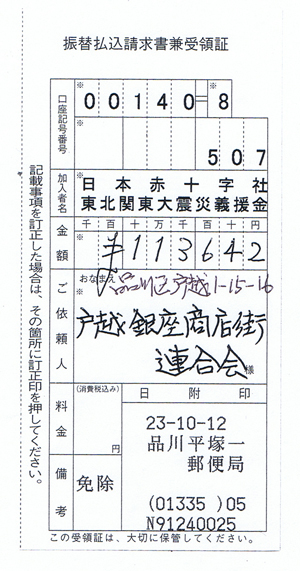 振替払込請求書兼受領証
口座記号番号
※
00140=8
※
507
加入者名
※
日本赤十字社
東北関東大震災義援金
金額
千 百 十 万 千 百 十 円
※
¥113642
ご依頼人
おなまえ
※
品川区戸越1-15-16
戸越銀座商店街
連合会様
料金
(消費税込み)
円
備考
免除
日附印
23-10-12
品川平塚一
郵便局
(01335 )05
N91240025
記載事項を訂正した場合は、その箇所に訂正印を押してください。
この受領証は、大切に保管してください。